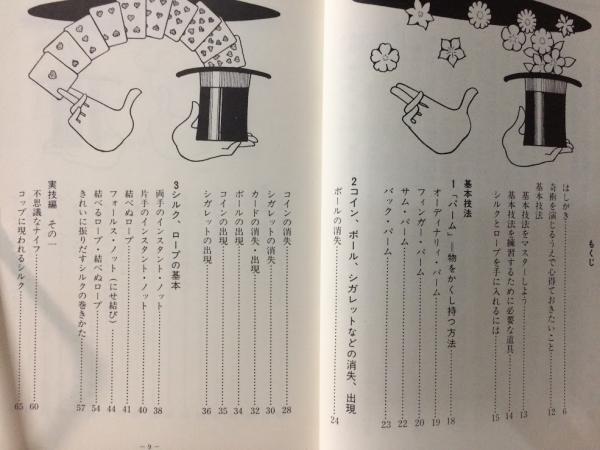 もくじ
はしがき…………6
奇術を演じるうえで心得ておきたいこと…………12
基本技法
基本技法をマスターしよう…………13
基本技法を練習するために必要な道具…………14
シルクとロープを手に入れるには…………15
基本技法
1「パーム」＝物をかくし持つ方法…………18
オーディナリィ・パーム…………19
フィンガー・パーム…………20
サム・パーム…………22
バック・パーム…………23
2コイン、ボール、シガレットなどの消失、出現
ボールの消失…………24
コインの消失…………28
シガレットの消失…………30
カードの消失・出現…………32
ボールの出現…………34
コインの出現…………35
シガレットの出現…………36
3シルク、ロープの基本
両手のインスタント・ノット…………38
片手のインスタント・ノット…………40
結べぬロープ…………41
フォールス・ノット（にせ結び）…………44
結べるロープ・結べぬロープ…………54
きれいに振りだすシルクの巻きかた…………57
実技編 その一
不思議なナイフ…………60
コップに現われるシルク…………65
－9－